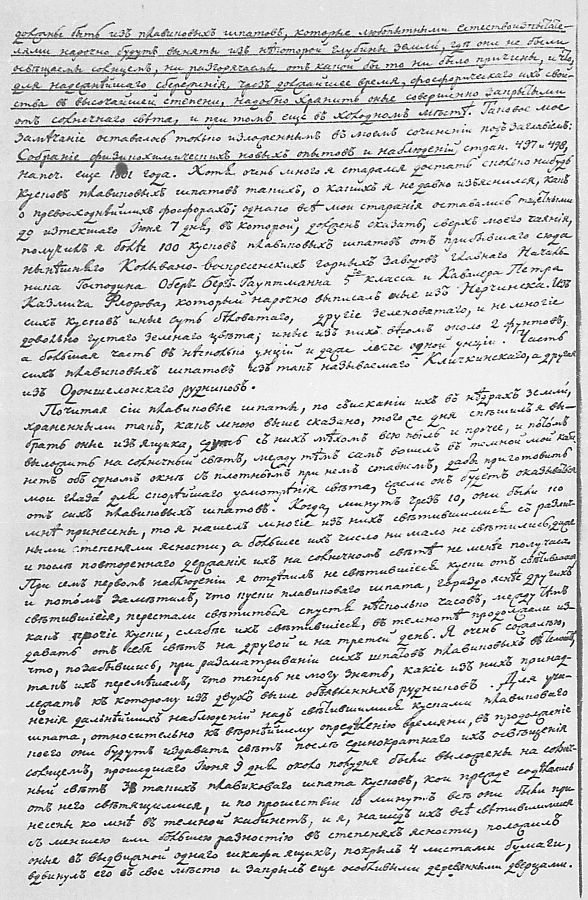 должны быть изъ плавиковыхъ шпатовъ, которые любопытными естествоиспытате-
лями нарочно будутъ вынуты изъ нѣкоторой глубины земли, гдѣ они не были
освѣщаемы солнцемъ, ни разгорячаемы отъ какой бы то ни было причины, и что,
для надежнѣйшаго сбереженія, чрезъ должайшее время, фосфорическаго ихъ свой-
ства въ высочайшей степени, надобно хранить оные совершенно закрытыми
отъ солнечнаго свѣта, и при томъ еще въ холодномъ мѣстѣ. Таковое мое
замѣчаніе оставалось только изложеннымъ въ моемъ сочиненіи подъ заглавіемъ:
Собраніе физикохимическихъ новыхъ опытовъ и наблюденій стран. 497 и 498,
напеч. еще 1801 года. Хотя очень много я старался достать сколько нибудь
кусковъ плавиковыхъ шпатовъ такихъ, о какихъ я недавно изъяснился, какъ
о превосходнѣйшихъ фосфорахъ; однако всѣ мои старанія оставались тщетными
до истекшаго Іюня 7 дня, въ которой, долженъ сказать, сверхъ моего чаянія,
получилъ я болѣе 100 кусковъ плавиковыхъ шпатовъ отъ прибывшаго сюда
нынѣшняго Колывано-воскресенскихъ горныхъ заводовъ главнаго Началь-
ника Господина Оберъ-Бергъ-Гауптманна 5го класса и Кавалера Петра
Козмича Фролова, который нарочно выписалъ оные изъ Нерчинска. Изъ
сихъ кусковъ иные суть бѣловатаго, другіе зеленоватаго, и не многіе
довольно густаго зеленаго цвѣта; иные изъ нихъ вѣсомъ около 2 фунтовъ,
а большая часть въ нѣсколько унцій и даже легче одной унціи. Часть
сихъ плавиковыхъ шпатовъ изъ такъ называемаго Кличкинскаго, а другая
изъ Одоншелонскаго рудниковъ.
Почитая сіи плавиковые шпаты, по сысканіи ихъ въ нѣдрахъ земли,
храненными такъ, какъ мною выше сказано, того же дня спѣшилъ я вы-
брать оные изъ ящика, сдуть съ нихъ мѣхомъ всю пыль и прочее, и потомъ
выложить на солнечный свѣтъ, между тѣмъ самъ вошелъ въ темной мой каби-
нетъ объ одномъ окнѣ съ плотномъ при немъ ставнемъ, дабы приготовить
мои глаза для скорѣйшаго усмотрѣнія свѣта, если онъ будетъ оказываться
отъ сихъ плавиковыхъ шпатовъ. Когда, минутъ чрезъ 10, они были ко
мнѣ принесены, то я нашелъ многіе изъ нихъ свѣтившимися съ различ-
ными степенями ясности, а большее ихъ число ни мало не свѣтились, даже
и послѣ повтореннаго держанія ихъ на солнечномъ свѣтѣ не менѣе получаса.
При семъ первомъ наблюденіи я отдѣлилъ не свѣтившіеся куски отъ свѣтившихся
и потомъ замѣтилъ, что куски плавиковаго шпата, гораздо яснѣе другихъ
свѣтившіеся, перестали свѣтиться спустя нѣсколько часовъ, между тѣмъ
какъ прочіе куски, слабѣе ихъ свѣтившіеся, въ темнотѣ продолжали из-
давать отъ себя свѣтъ на другой и на третей день. Я очень сожалѣю,
что, позабывшись, при разсматриваніи сихъ шпатовъ плавиковыхъ въ темнотѣ,
такъ ихъ перемѣшалъ, что теперь не могу знать, какіе изъ нихъ принад-
лежатъ къ которому изъ двухъ выше объявленныхъ рудниковъ. Для учи-
ненія дальнѣйшихъ наблюденій надъ свѣтившимися кусками плавиковаго
шпата, относительно къ вѣрнѣйшему опредѣленію времяни, въ продолженіе
коего они будутъ издавать свѣтъ послѣ единократнаго ихъ освѣщенія
солнцемъ, прошедшаго Іюня 9 дня около полудня были выложены на солнеч-
ный свѣтъ такихъ плавиковаго шпата кусковъ, кои прежде содѣлались
отъ него свѣтящимися, и по прошествіи 10 минутъ всѣ они были при-
несены ко мнѣ въ темной кабинетъ, и я, нашедъ ихъ всѣ свѣтившимися
съ меншею или большею разностію въ степеняхъ ясности, положилъ
оные въ выдвижной однаго шкафа ящикъ, покрылъ 4 листами бумаги,
вдвинулъ его въ свое мѣсто и закрылъ еще особливыми деревянными дверцами.